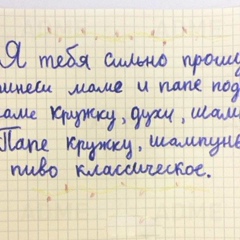 Я тебя сильно прошу
принеси маме и папе под
маме кружку, духи, шам
Папе кружку, шампунь
пиво классическое.